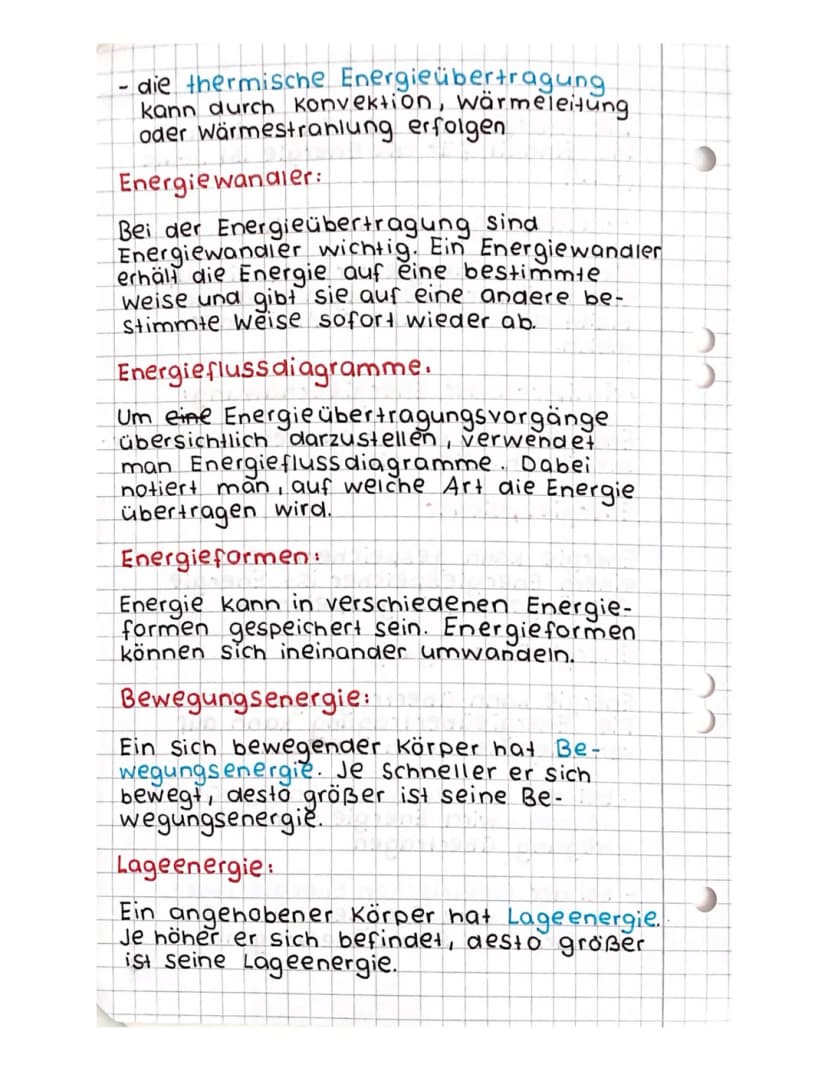 - die thermische Energieübertragung
kann durch Konvektion, Wärmeleitung
oder Wärmestrahlung erfolgen
Energiewandler:
Bei der Energieübertragung sind
Energiewandler wichtig. Ein Energiewandler
erhält die Energie auf eine bestimmte
Weise und gibt sie auf eine andere be-
stimmte Weise sofort wieder ab.
Energieflussdiagramme:
Um eine Energieübertragungsvorgänge
übersichtlich darzustellen, verwendet
man Energieflussdiagramme. Dabei
notiert man, auf welche Art die Energie
übertragen wird.
Energieformen:
Energie kann in verschiedenen Energie-
formen gespeichert sein. Energieformen
können sich ineinander umwandeln.
Bewegungsenergie:
Ein sich bewegender Körper hat Be-
wegungsenergie. Je schneller er sich
bewegt, desto größer ist seine Be-
wegungsenergie.
Lageenergie:
Ein angehobener Körper hat Lageenergie.
Je höher er sich befindet, desto größer
ist seine Lageenergie.